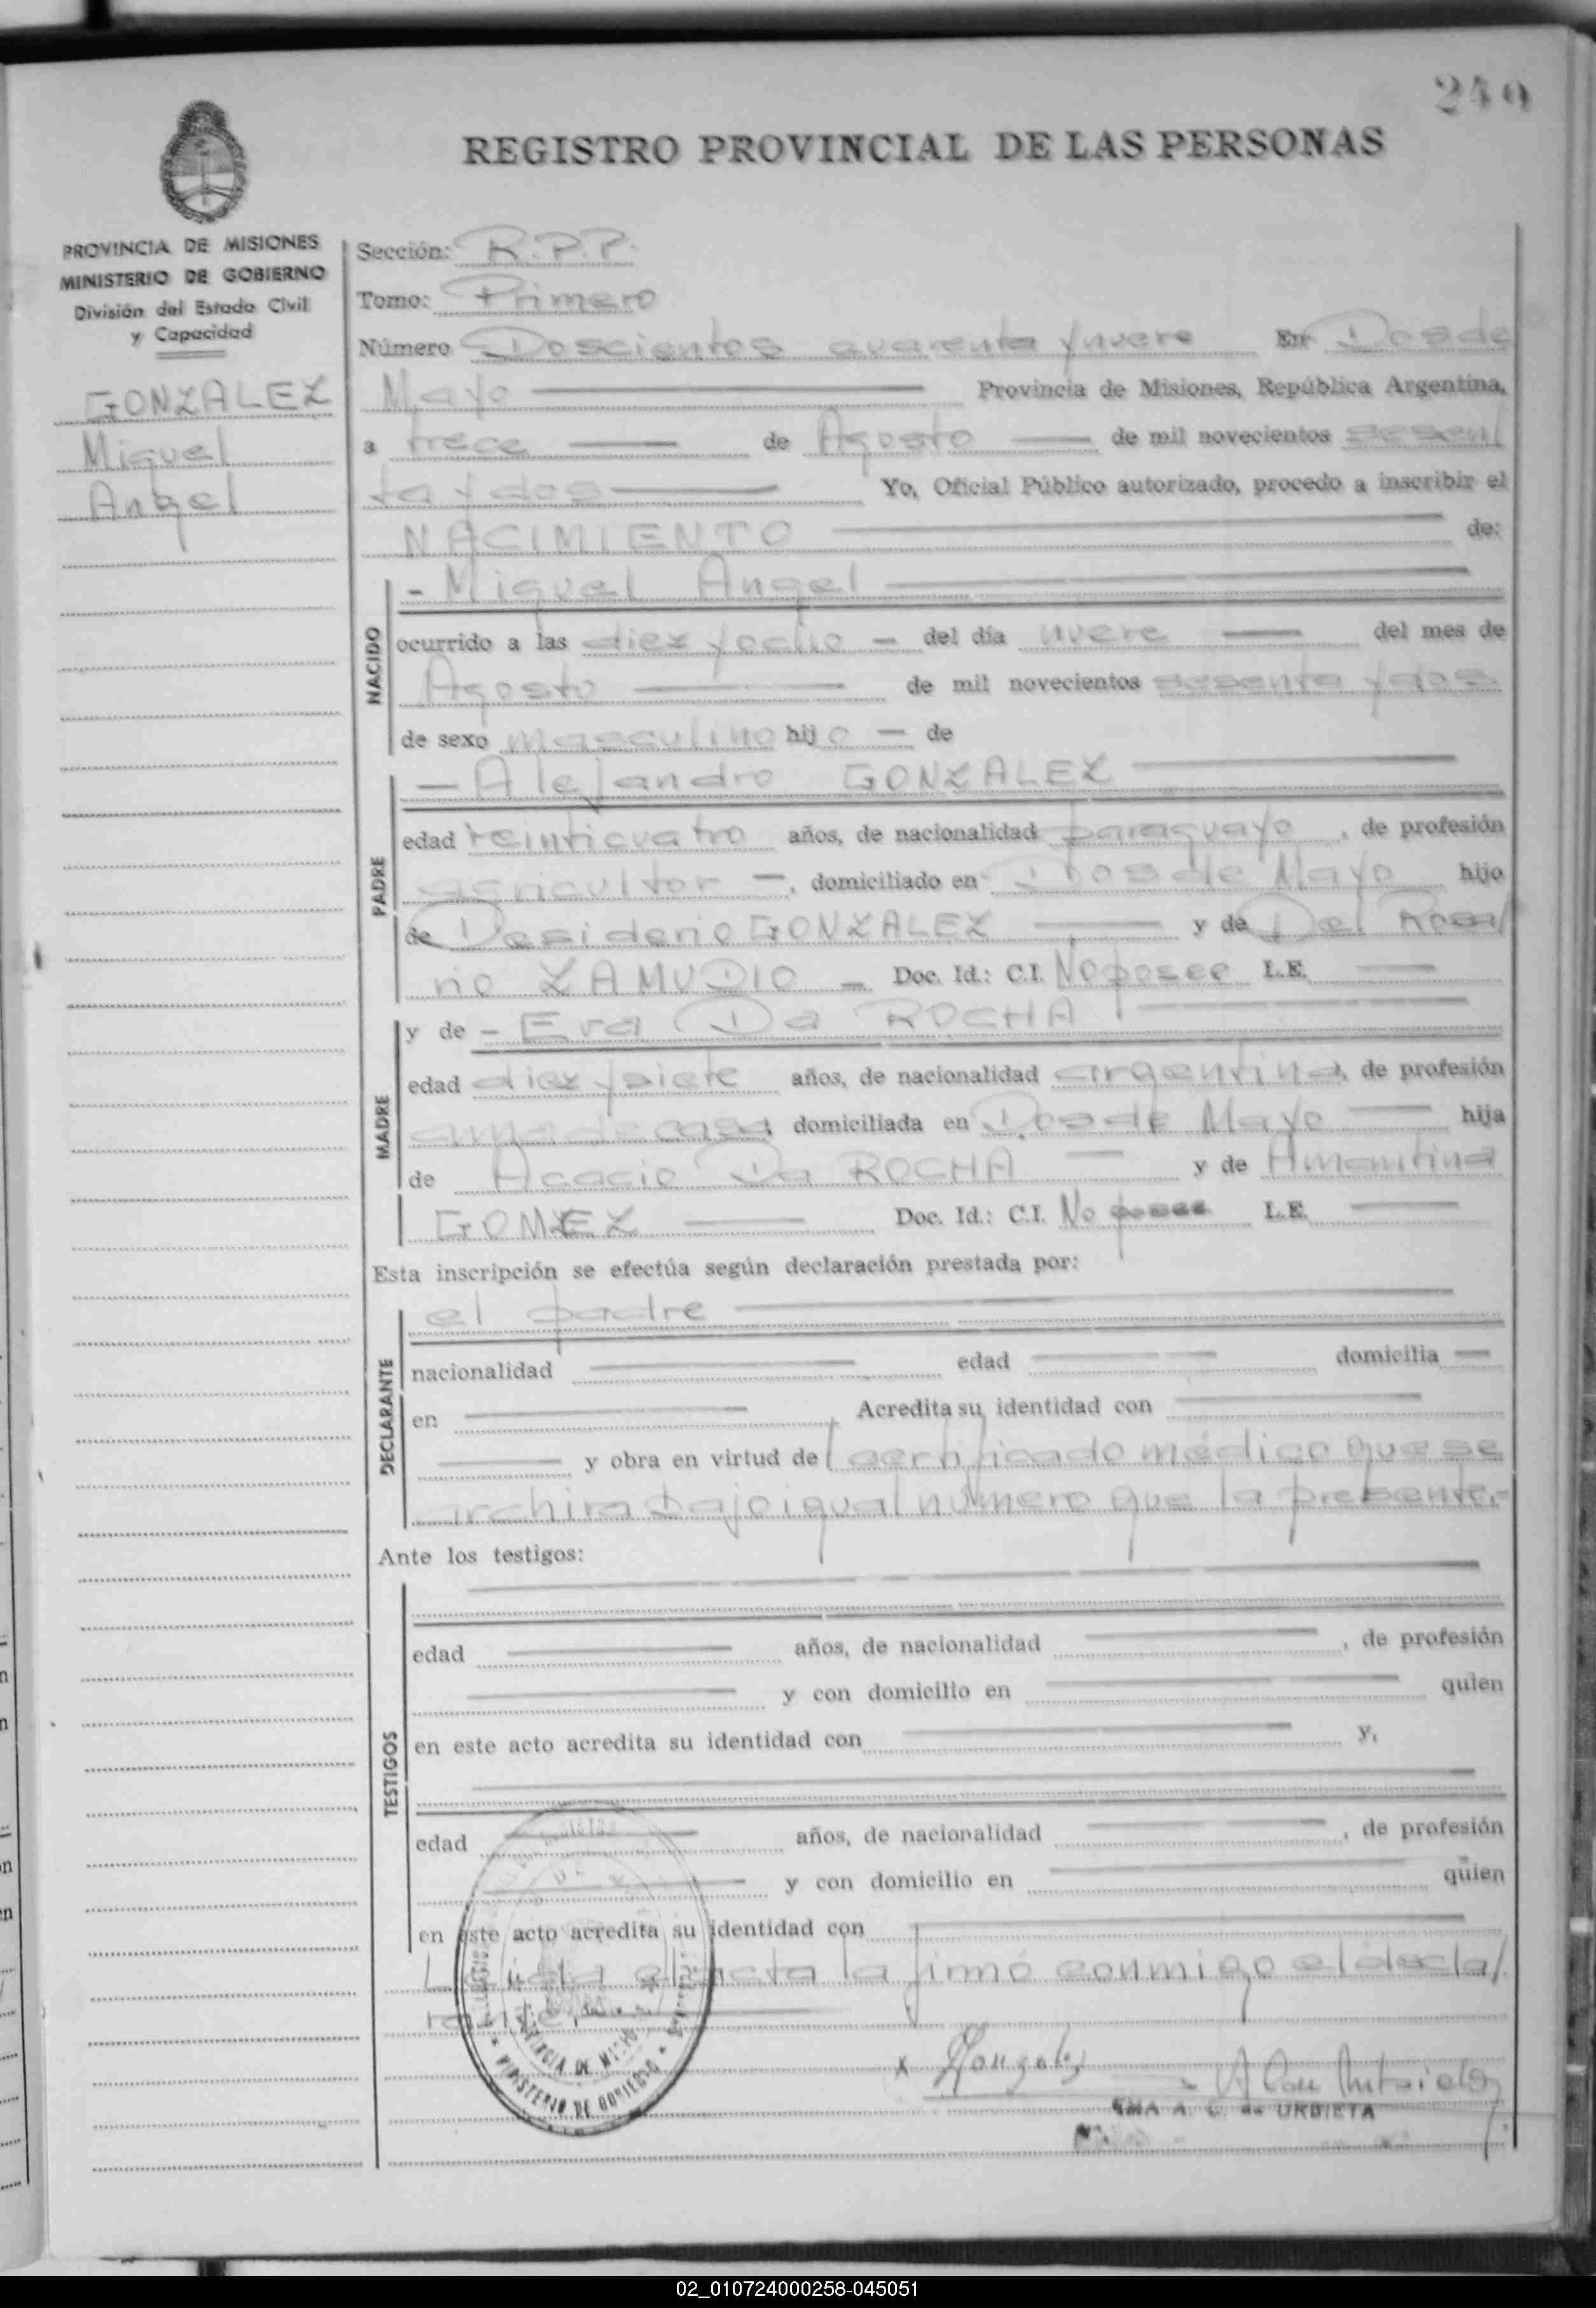 249
REGISTRO PROVINCIAL DE LAS PERSONAS
PROVINCIA DE MISIONES
MINISTERIO DE GOBIERNO
División del Estado Civil
y Capacidad
GONZALEZ
Miguel
Angel
Sección: R.P.P.
Tomo: Primero
Número Doscientos cuarenta y nueve En Dos de
Mayo Provincia de Misiones, República Argentina,
a trece de Agosto de mil novecientos sesen/
ta y dos Yo, Oficial Público autorizado, procedo a inscribir el
NACIMIENTO de:
NACIDO
- Miguel Angel
ocurrido a las diez y ocho - del día nueve del mes de
Agosto de mil novecientos sesenta y dos
de sexo masculino hijo - de
PADRE
- Alejandro GONZALEZ
edad veinticuatro años, de nacionalidad paraguayo, de profesión
agricultor -, domiciliado en Dos de Mayo hijo
de Desiderio GONZALEZ y de Del Rosa/
rio ZAMUDIO - Doc. Id.: C.I. No posee L.E.
MADRE
y de - Eva Da ROCHA
edad diez y siete años, de nacionalidad argentina, de profesión
ama de casa, domiciliada en Dos de Mayo hija
de Acacio Da ROCHA y de Amantina
GOMEZ Doc. Id.: C.I. No posee L.E.
Esta inscripción se efectúa según declaración prestada por:
DECLARANTE
el padre
nacionalidad edad domicilia
en Acredita su identidad con
y obra en virtud del certificado médico que se
archiva bajo igual número que la presente.-
Ante los testigos:
TESTIGOS
edad años, de nacionalidad , de profesión
y con domicilio en quien
en este acto acredita su identidad con y,
edad años, de nacionalidad , de profesión
y con domicilio en quien
en este acto acredita su identidad con
Leída el acta la firmó conmigo el decla/
rante.
x Gonzalez
A. C. de URBIETA
MINISTERIO DE GOBIERNO
02_010724000258-045051